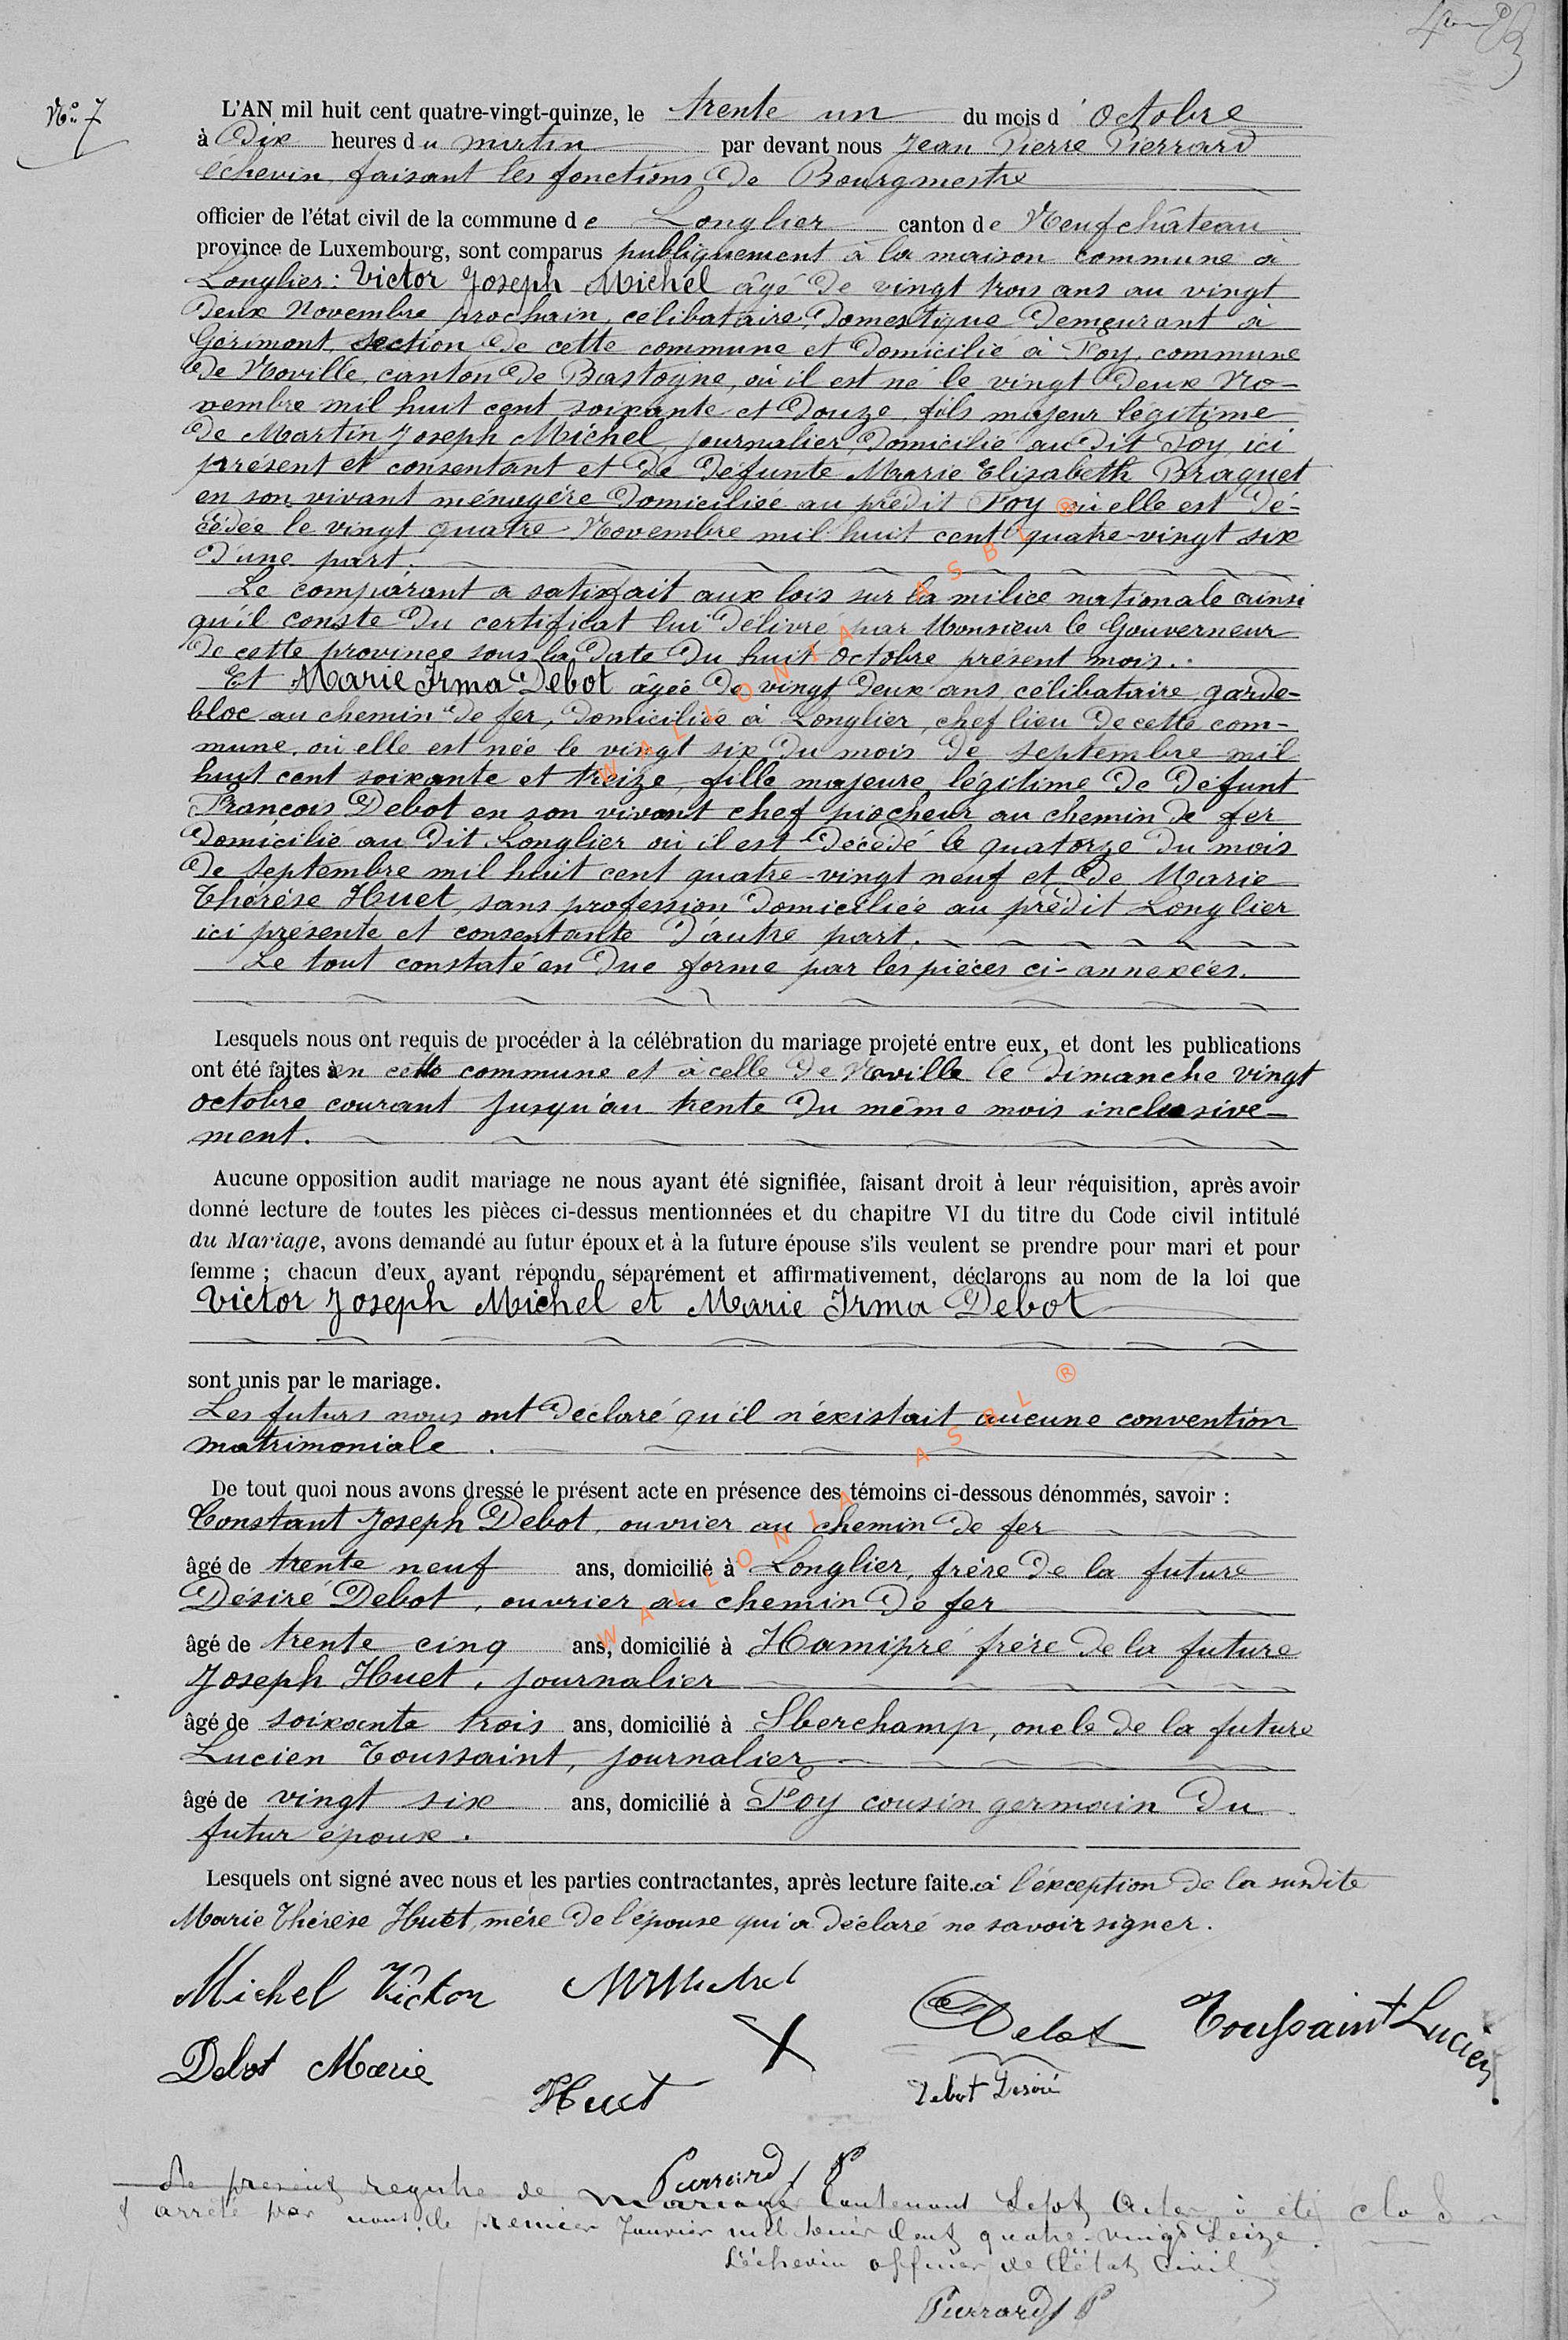 No 7
L'AN mil huit cent quatre-vingt-quinze, le trente un du mois d' Octobre
à Dix heures du matin par devant nous Jean Pierre Pierrard
échevin, faisant les fonctions de Bourgmestre
officier de l'état civil de la commune de Longlier canton de Neufchâteau
province de Luxembourg, sont comparus publiquement à la maison commune à
Longlier: Victor Joseph Michel âgé de vingt trois ans au vingt
deux Novembre prochain, célibataire, domestique demeurant à
Gérimont, section de cette commune et domicilié à Foy, commune
de Noville, canton de Bastogne, où il est né le vingt deux No-
vembre mil huit cent soixante et douze, fils majeur légitime
de Martin Joseph Michel, journalier, domicilié au dit Foy, ici
présent et consentant et de défunte Marie Elisabeth Braquet
en son vivant ménagère domiciliée au prédit Foy où elle est dé-
cédée le vingt quatre Novembre mil huit cent quatre-vingt six
d'une part.
Le comparant a satisfait aux lois sur la milice nationale ainsi
qu'il conste du certificat lui délivré par Monsieur le Gouverneur
de cette province sous la date du huit Octobre présent mois.
Et Marie Irma Debot âgée de vingt deux ans, célibataire, garde-
bloc au chemin de fer, domiciliée à Longlier, chef lieu de cette com-
mune, où elle est née le vingt six du mois de septembre mil
huit cent soixante et treize, fille majeure légitime de défunt
François Debot en son vivant chef piocheur au chemin de fer
domicilié au dit Longlier où il est décédé le quatorze du mois
de septembre mil huit cent quatre-vingt neuf et de Marie
Thérèse Huet, sans profession domiciliée au prédit Longlier
ici présente et consentante d'autre part.
Le tout constaté en due forme par les pièces ci-annexées.
Lesquels nous ont requis de procéder à la célébration du mariage projeté entre eux, et dont les publications
ont été faites en cette commune et à celle de Noville le dimanche vingt
octobre courant jusqu'au trente du même mois inclusive-
ment.
Aucune opposition audit mariage ne nous ayant été signifiée, faisant droit à leur réquisition, après avoir
donné lecture de toutes les pièces ci-dessus mentionnées et du chapitre VI du titre du Code civil intitulé
du Mariage, avons demandé au futur époux et à la future épouse s'ils veulent se prendre pour mari et pour
femme ; chacun d'eux ayant répondu séparément et affirmativement, déclarons au nom de la loi que
Victor Joseph Michel et Marie Irma Debot
sont unis par le mariage.
Les futurs nous ont déclaré qu'il n'existait aucune convention
matrimoniale.
De tout quoi nous avons dressé le présent acte en présence des témoins ci-dessous dénommés, savoir :
Constant Joseph Debot, ouvrier au chemin de fer
âgé de trente neuf ans, domicilié à Longlier, frère de la future
Désiré Debot, ouvrier au chemin de fer
âgé de trente cinq ans, domicilié à Hamipré frère de la future
Joseph Huet, journalier
âgé de soixante trois ans, domicilié à Sberchamp, oncle de la future
Lucien Toussaint, journalier
âgé de vingt six ans, domicilié à Foy cousin germain du
futur époux.
Lesquels ont signé avec nous et les parties contractantes, après lecture faite. à l'exception de la susdite
Marie Thérèse Huet, mère de l'épouse qui a déclaré ne savoir signer.
Michel Victor
Debot Toussaint Lucien
Debot Marie X
Huet Debot Désiré
Pierrard J P
Le présent registre de mariage Contenant Sept Actes à été clos
& arrêté par nous, le premier Janvier mil huit Cent quatre-vingt Seize
L'échevin officier de l'état Civil
Pierrard J P
WALLONIA ASBL ®
WALLONIA ASBL ®